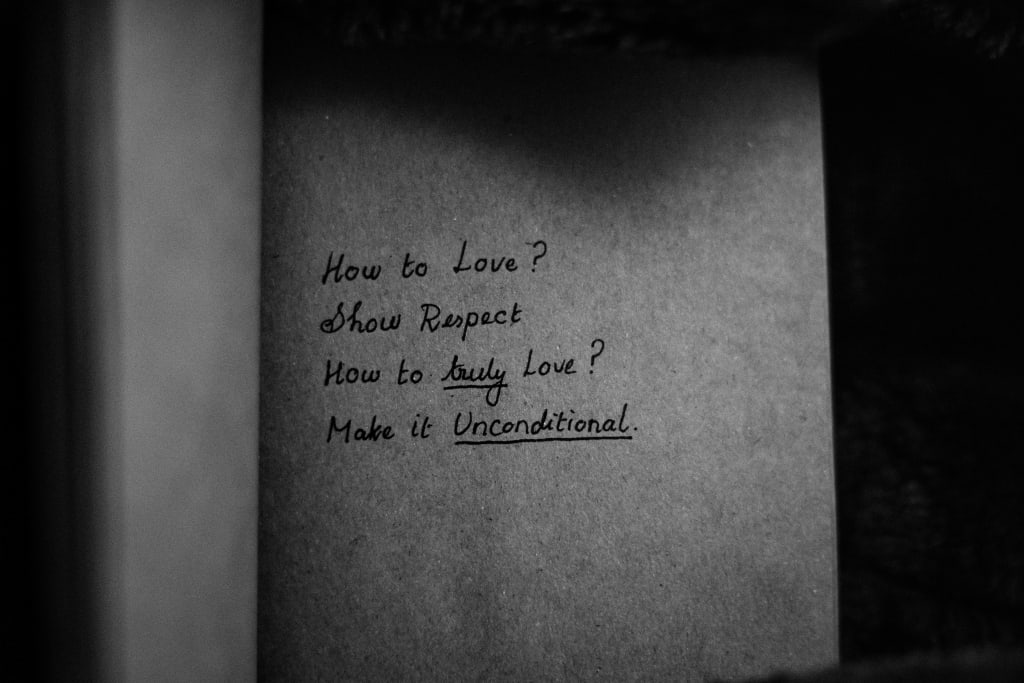 How to Love?
Show Respect
How to truly Love?
Make it Unconditional.